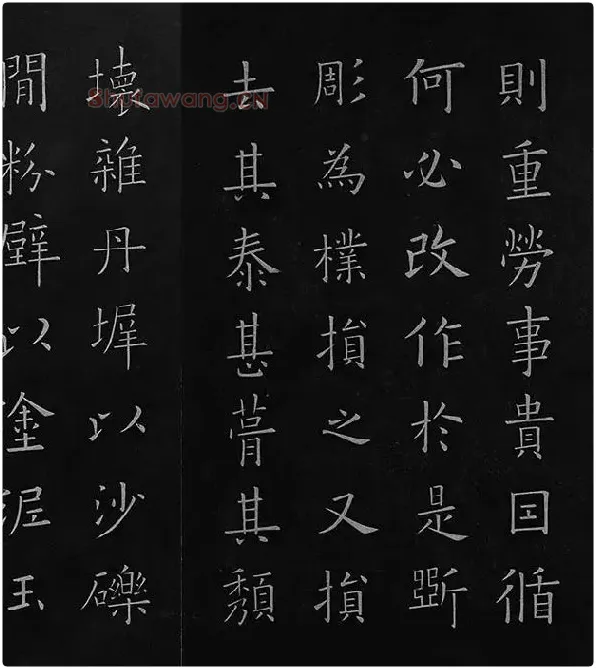 則重勞事貴因循
何必改作於是斲
彫為樸損之又損
去其泰甚葺其頹
壞雜丹墀以沙礫
間粉壁以塗泥玉
8hufawang.CN